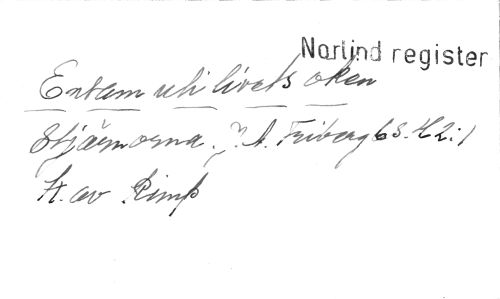 Norlind register
Ensam uti livets öken
Stjärnorna. J. A. Friberg 6 S. H2:1
H. av Rimp